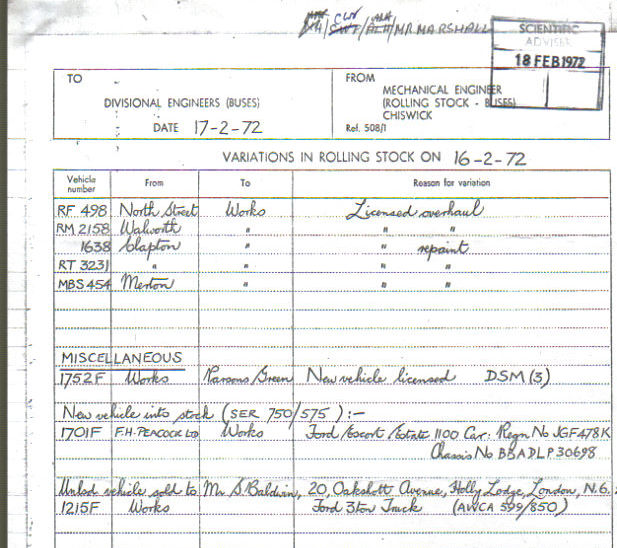 CLW
MR MARSHALL
SCIENTIFIC
ADVISER
18 FEB 1972
TO
DIVISIONAL ENGINEERS (BUSES)
DATE 17-2-72
FROM
MECHANICAL ENGINEER
(ROLLING STOCK - BUSES)
CHISWICK
Ref. 508/1
VARIATIONS IN ROLLING STOCK ON 16-2-72
Vehicle number From To Reason for variation
RF 498 North Street Works Licensed overhaul
RM 2158 Walworth " " "
1638 Clapton " " repaint
RT 3231 " " " "
MBS 454 Merton " " "
MISCELLANEOUS
1752F Works Parsons Green New vehicle licensed DSM (3)
New vehicle into stock (SER 750/575) :-
1701F F.H. PEACOCK LTD Works Ford Escort Estate 1100 Car: Regn No JGF478K
Chassis No BBADLP30698
Unlsd vehicle sold to Mr S. Baldwin, 20, Oakshott Avenue, Holly Lodge, London, N.6.
1215F Works Ford 3ton Truck (AWCA 599/850)